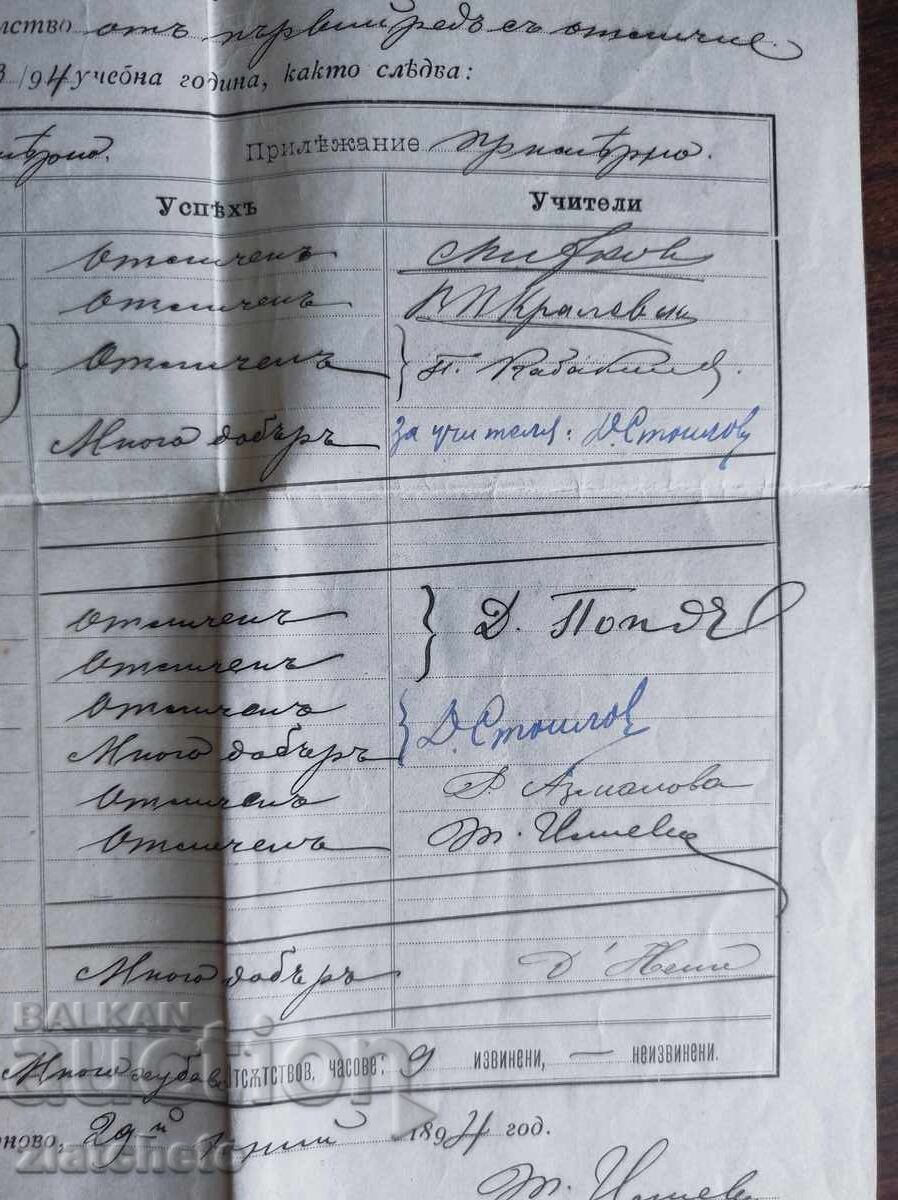 лство отъ първий редъ съ отличие
3/94 учебна година, както слѣдва:
мѣрно. Прилѣжание примѣрно.
Успѣхъ Учители
Отличенъ
Отличенъ
Отличенъ П.
Много добъръ за учителя: Д. Стоилов
Отличенъ Д. Попов
Отличенъ
Отличенъ Д. Стоилов
Много добъръ
Отличенъ Азманова
Отличенъ Т. Илиев
Много добъръ
Много хубав тсѫтствов. часове: 9 извинени, — неизвинени.
рново, 29й Юний 1894 год.
Т. Илиев
BALKAN
auction
zlatchets